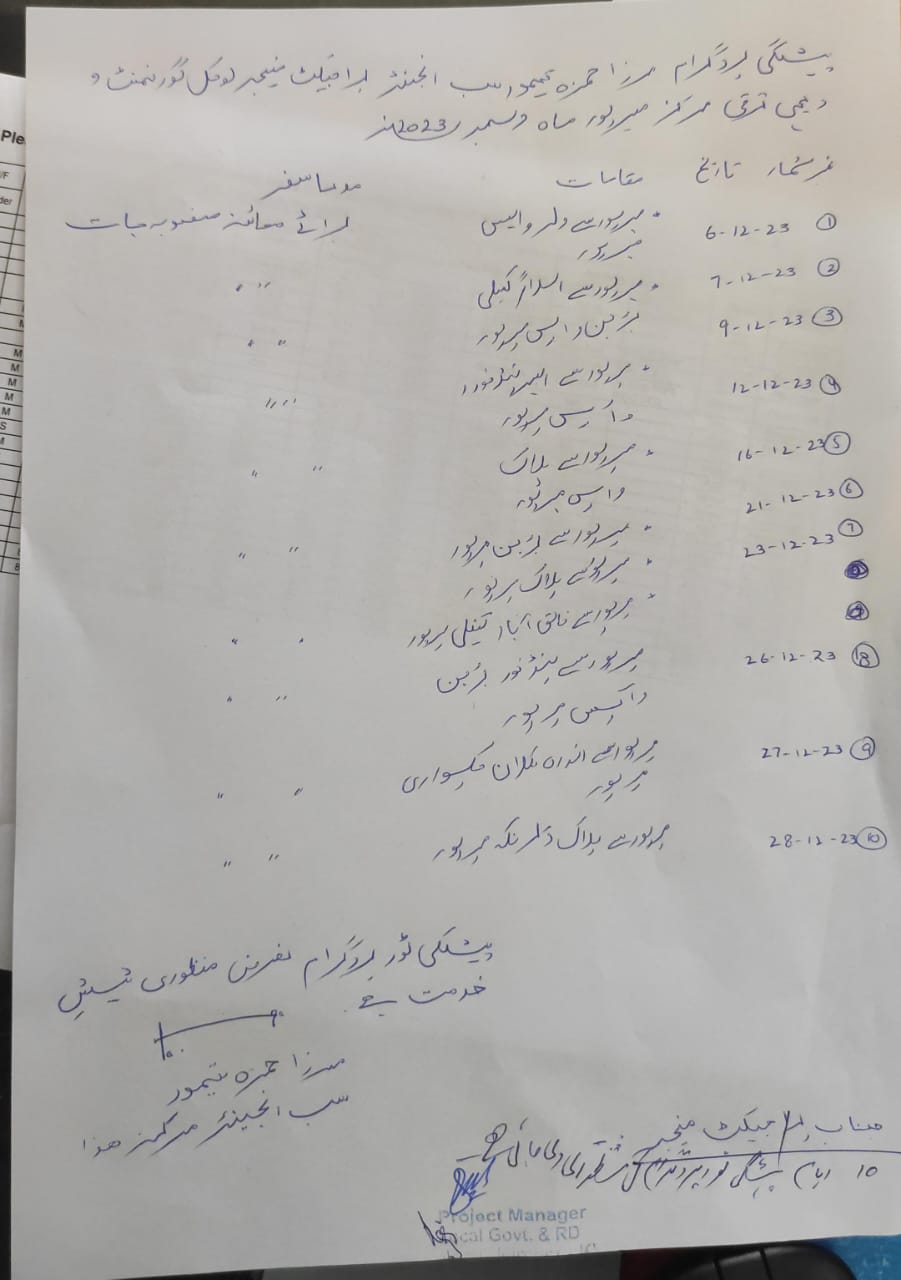 پیشگی پروگرام مرزا حمزہ تیمور سب انجینئر پراجیکٹ منیجر لوکل گورنمنٹ و
دیہی ترقی مرکز میرپور ماہ دسمبر 2023ء
نمبر شمار تاریخ مقامات مدعا سفر
① 6-12-23 میرپور سے واپس میرپور برائے معائنہ منصوبہ جات
② 7-12-23 میرپور سے اسلام گڑھ " "
③ 9-12-23 بڑبن واپس میرپور " "
④ 12-12-23 میرپور سے
واپس میرپور " "
⑤ 16-12-23 میرپور سے پلاک " "
⑥ 21-12-23 واپس میرپور
⑦ 23-12-23 میرپور سے بڑبن میرپور " "
میرپور سے پلاک میرپور
میرپور سے خالق آباد میرپور " "
⑧ 26-12-23 میرپور سے پنڈ خورد بڑبن " "
واپس میرپور
⑨ 27-12-23 میرپور سے اندرہ کلاں چکسواری " "
میرپور
⑩ 28-12-23 میرپور سے پلاک میرپور " "
پیشگی ٹور پروگرام بغرض منظوری پیش
خدمت ہے۔
مرزا حمزہ تیمور
سب انجینئر مرکز ھذا
جناب پراجیکٹ منیجر
10 ایام پیشگی ٹور پروگرام کی منظوری دی جاتی ہے۔
Project Manager
Local Govt. & RD
Ple